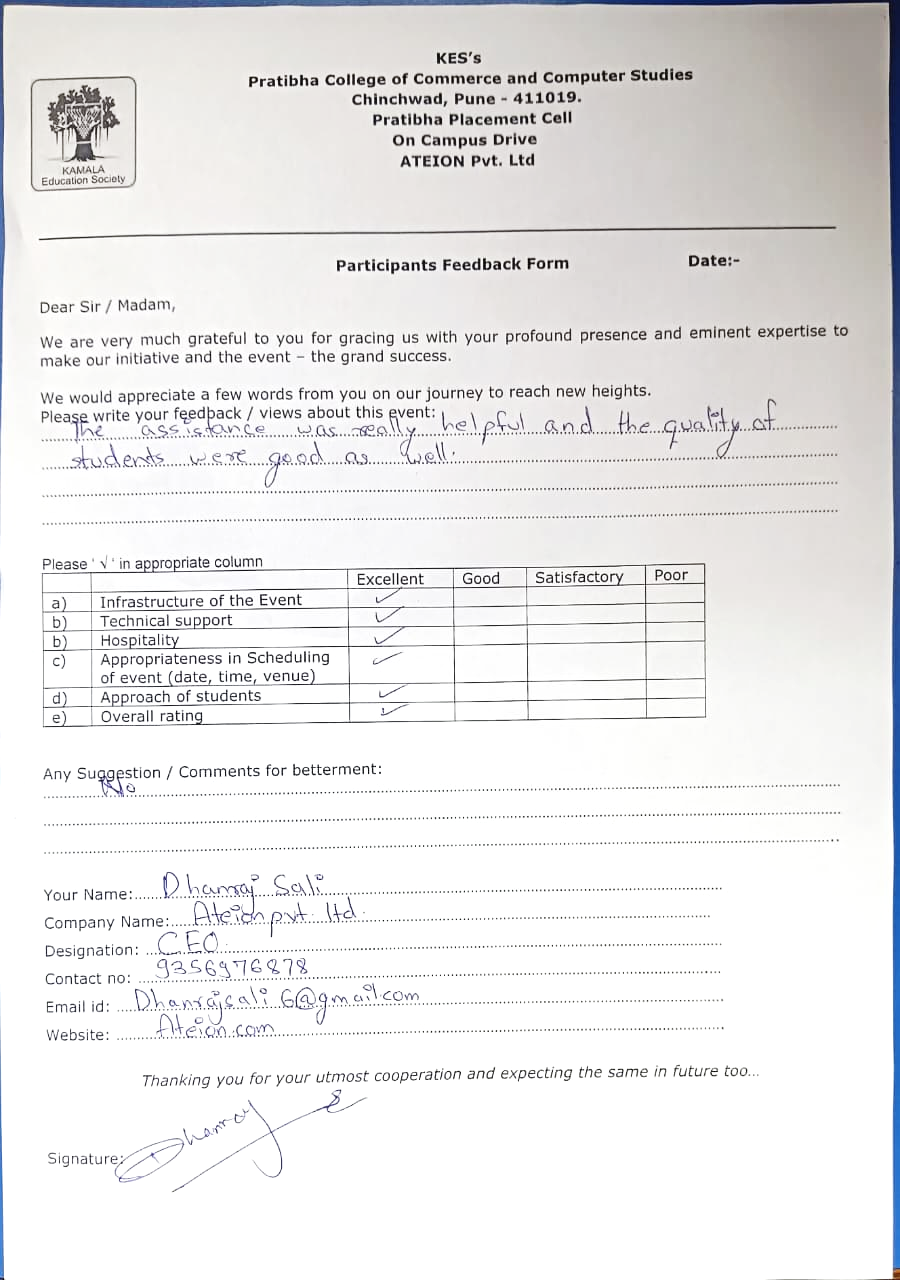 KES's
Pratibha College of Commerce and Computer Studies
Chinchwad, Pune - 411019.
Pratibha Placement Cell
On Campus Drive
ATEION Pvt. Ltd
KAMALA
Education Society
Participants Feedback Form Date:-
Dear Sir / Madam,
We are very much grateful to you for gracing us with your profound presence and eminent expertise to
make our initiative and the event – the grand success.
We would appreciate a few words from you on our journey to reach new heights.
Please write your feedback / views about this event:
The assistance was really helpful and the quality of
students were good as well.
Please ' √ ' in appropriate column
Excellent Good Satisfactory Poor
a) Infrastructure of the Event ✓
b) Technical support ✓
b) Hospitality ✓
c) Appropriateness in Scheduling ✓
of event (date, time, venue)
d) Approach of students ✓
e) Overall rating ✓
Any Suggestion / Comments for betterment:
No
Your Name: Dhanraj Sali
Company Name: Ateion pvt. ltd.
Designation: CEO.
Contact no: 9356976878
Email id: Dhanrajsali6@gmail.com
Website: Ateion.com
Thanking you for your utmost cooperation and expecting the same in future too...
Signature: Dhanraj S